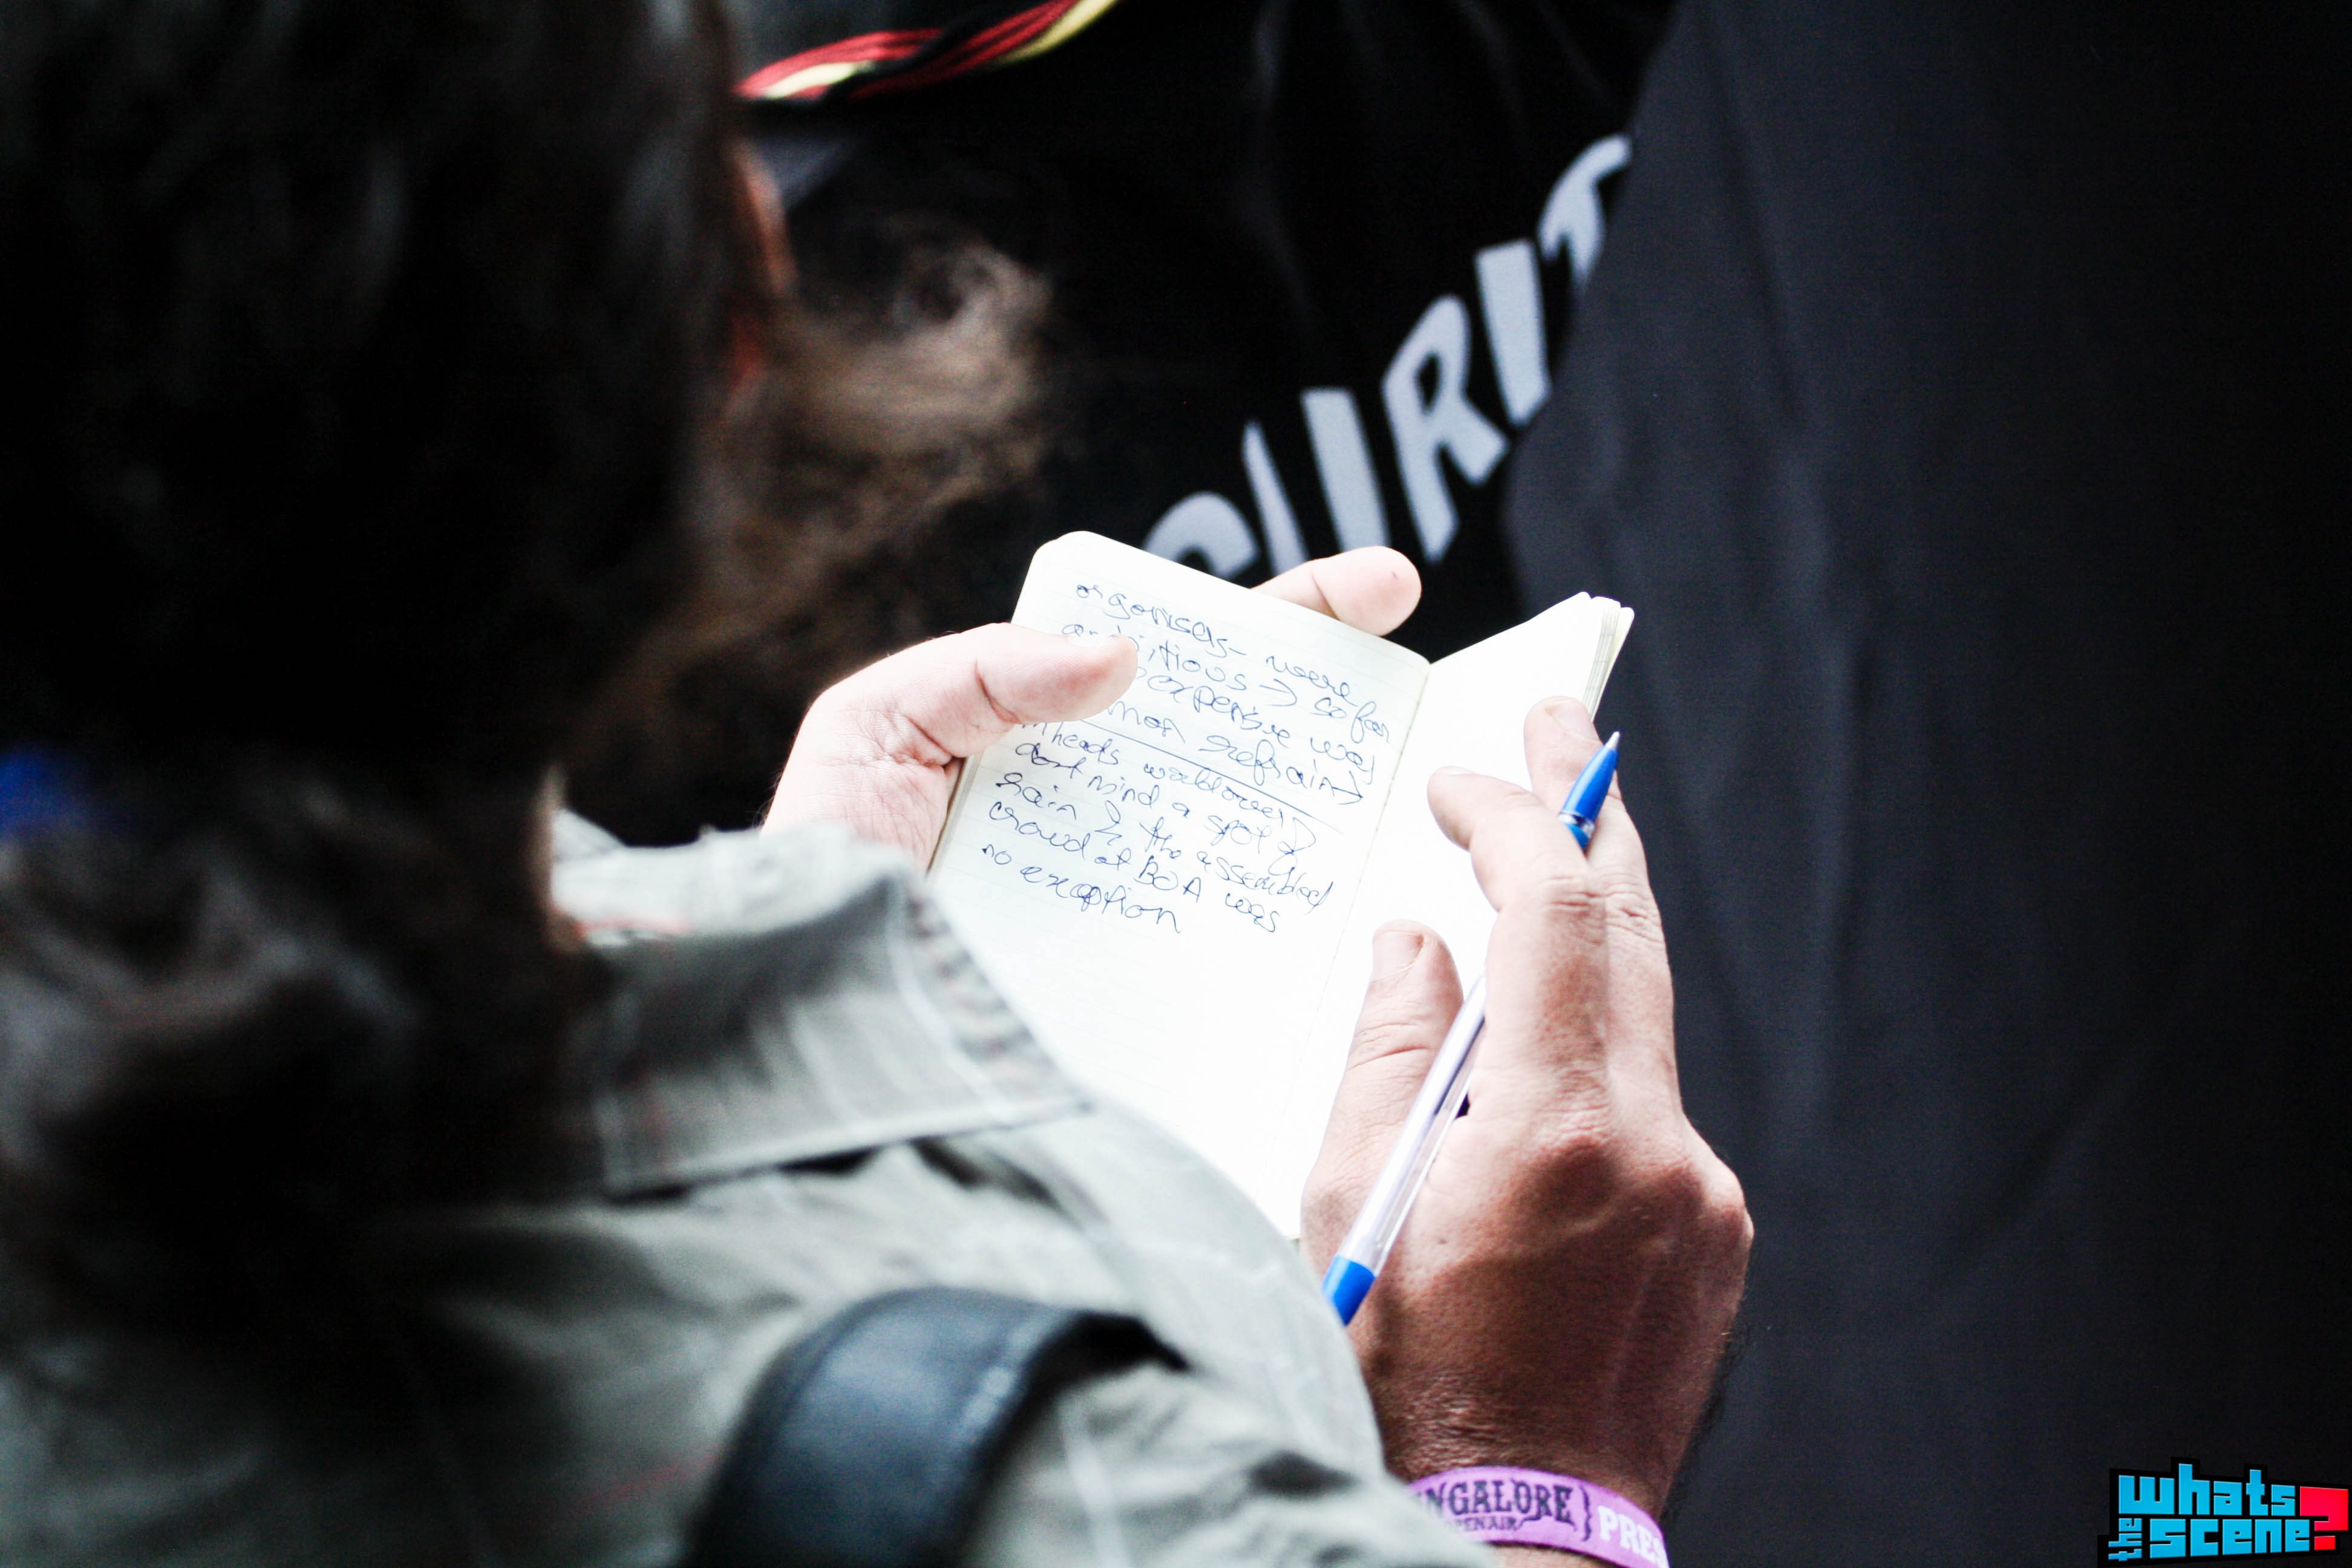 CURIT
organisers- were
ambitious → so far
expensive was
mon refrain →
mheads worldover →
dont mind a spot of
rain & the assembled
crowd at BOA was
no exception
NGALORE
OPENAIR
PRES
whats
the scene?